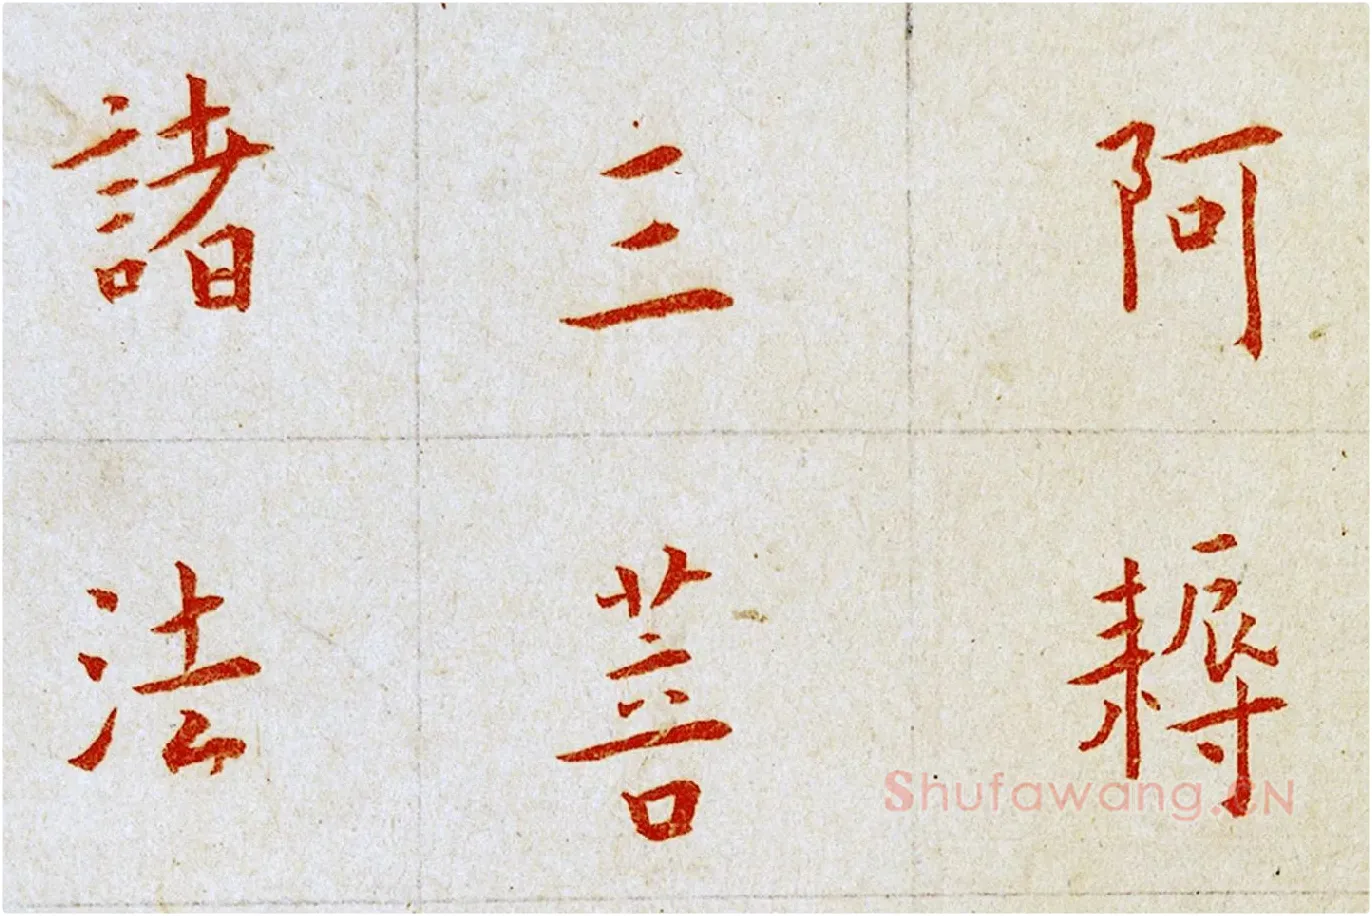 阿耨
三菩
諸法
Shufawang.CN